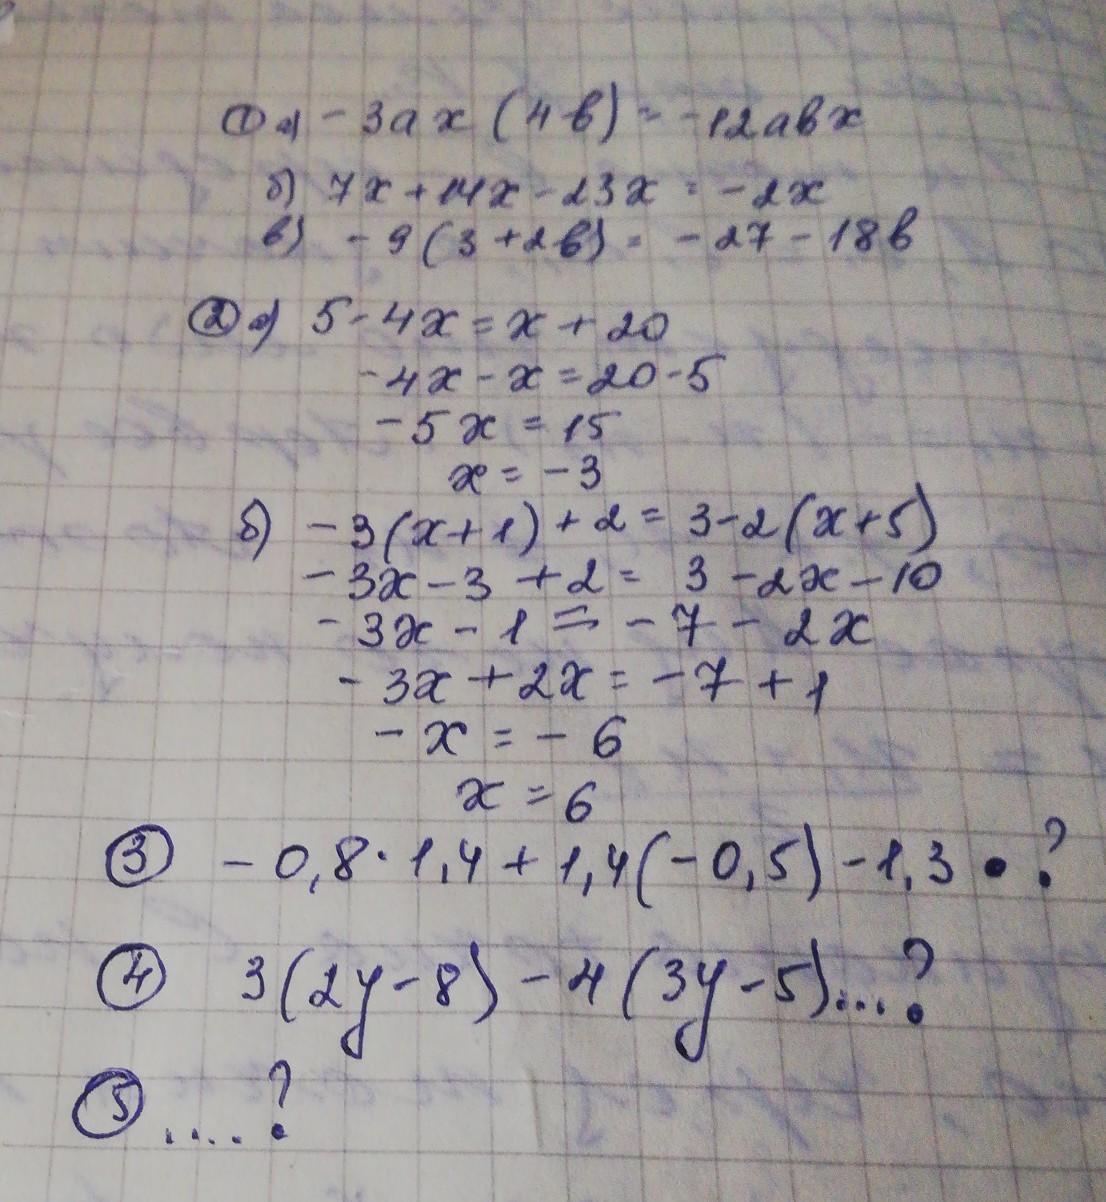 ① а) - 3ax (4b) = -12abx
б) 7x + 14x - 23x = -2x
в) - 9 (3 + 2b) = -27 - 18b
② а) 5 - 4x = x + 20
-4x - x = 20 - 5
- 5x = 15
x = -3
б) - 3(x + 1) + 2 = 3 - 2(x + 5)
- 3x - 3 + 2 = 3 - 2x - 10
- 3x - 1 = - 7 - 2x
- 3x + 2x = - 7 + 1
- x = - 6
x = 6
③ - 0,8 · 1,4 + 1,4(-0,5) - 1,3 · ?
④ 3(2y - 8) - 4(3y - 5)...?
⑤ ....?